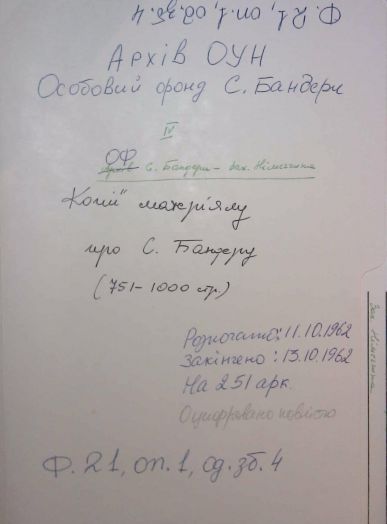 Ф. 21, оп. 1, од. зб. 4
Архів ОУН
Особовий фонд С. Бандери
IV
ОФ
С. Бандери - Зах. Німеччина
Копії матеріялу
про С. Бандеру
(751-1000 стр.)
Розпочато: 11.10.1962
Закінчено: 13.10.1962
На 251 арк.
Оцифровано повністю
Ф. 21, оп. 1, од. зб. 4
Зах. Німеччина